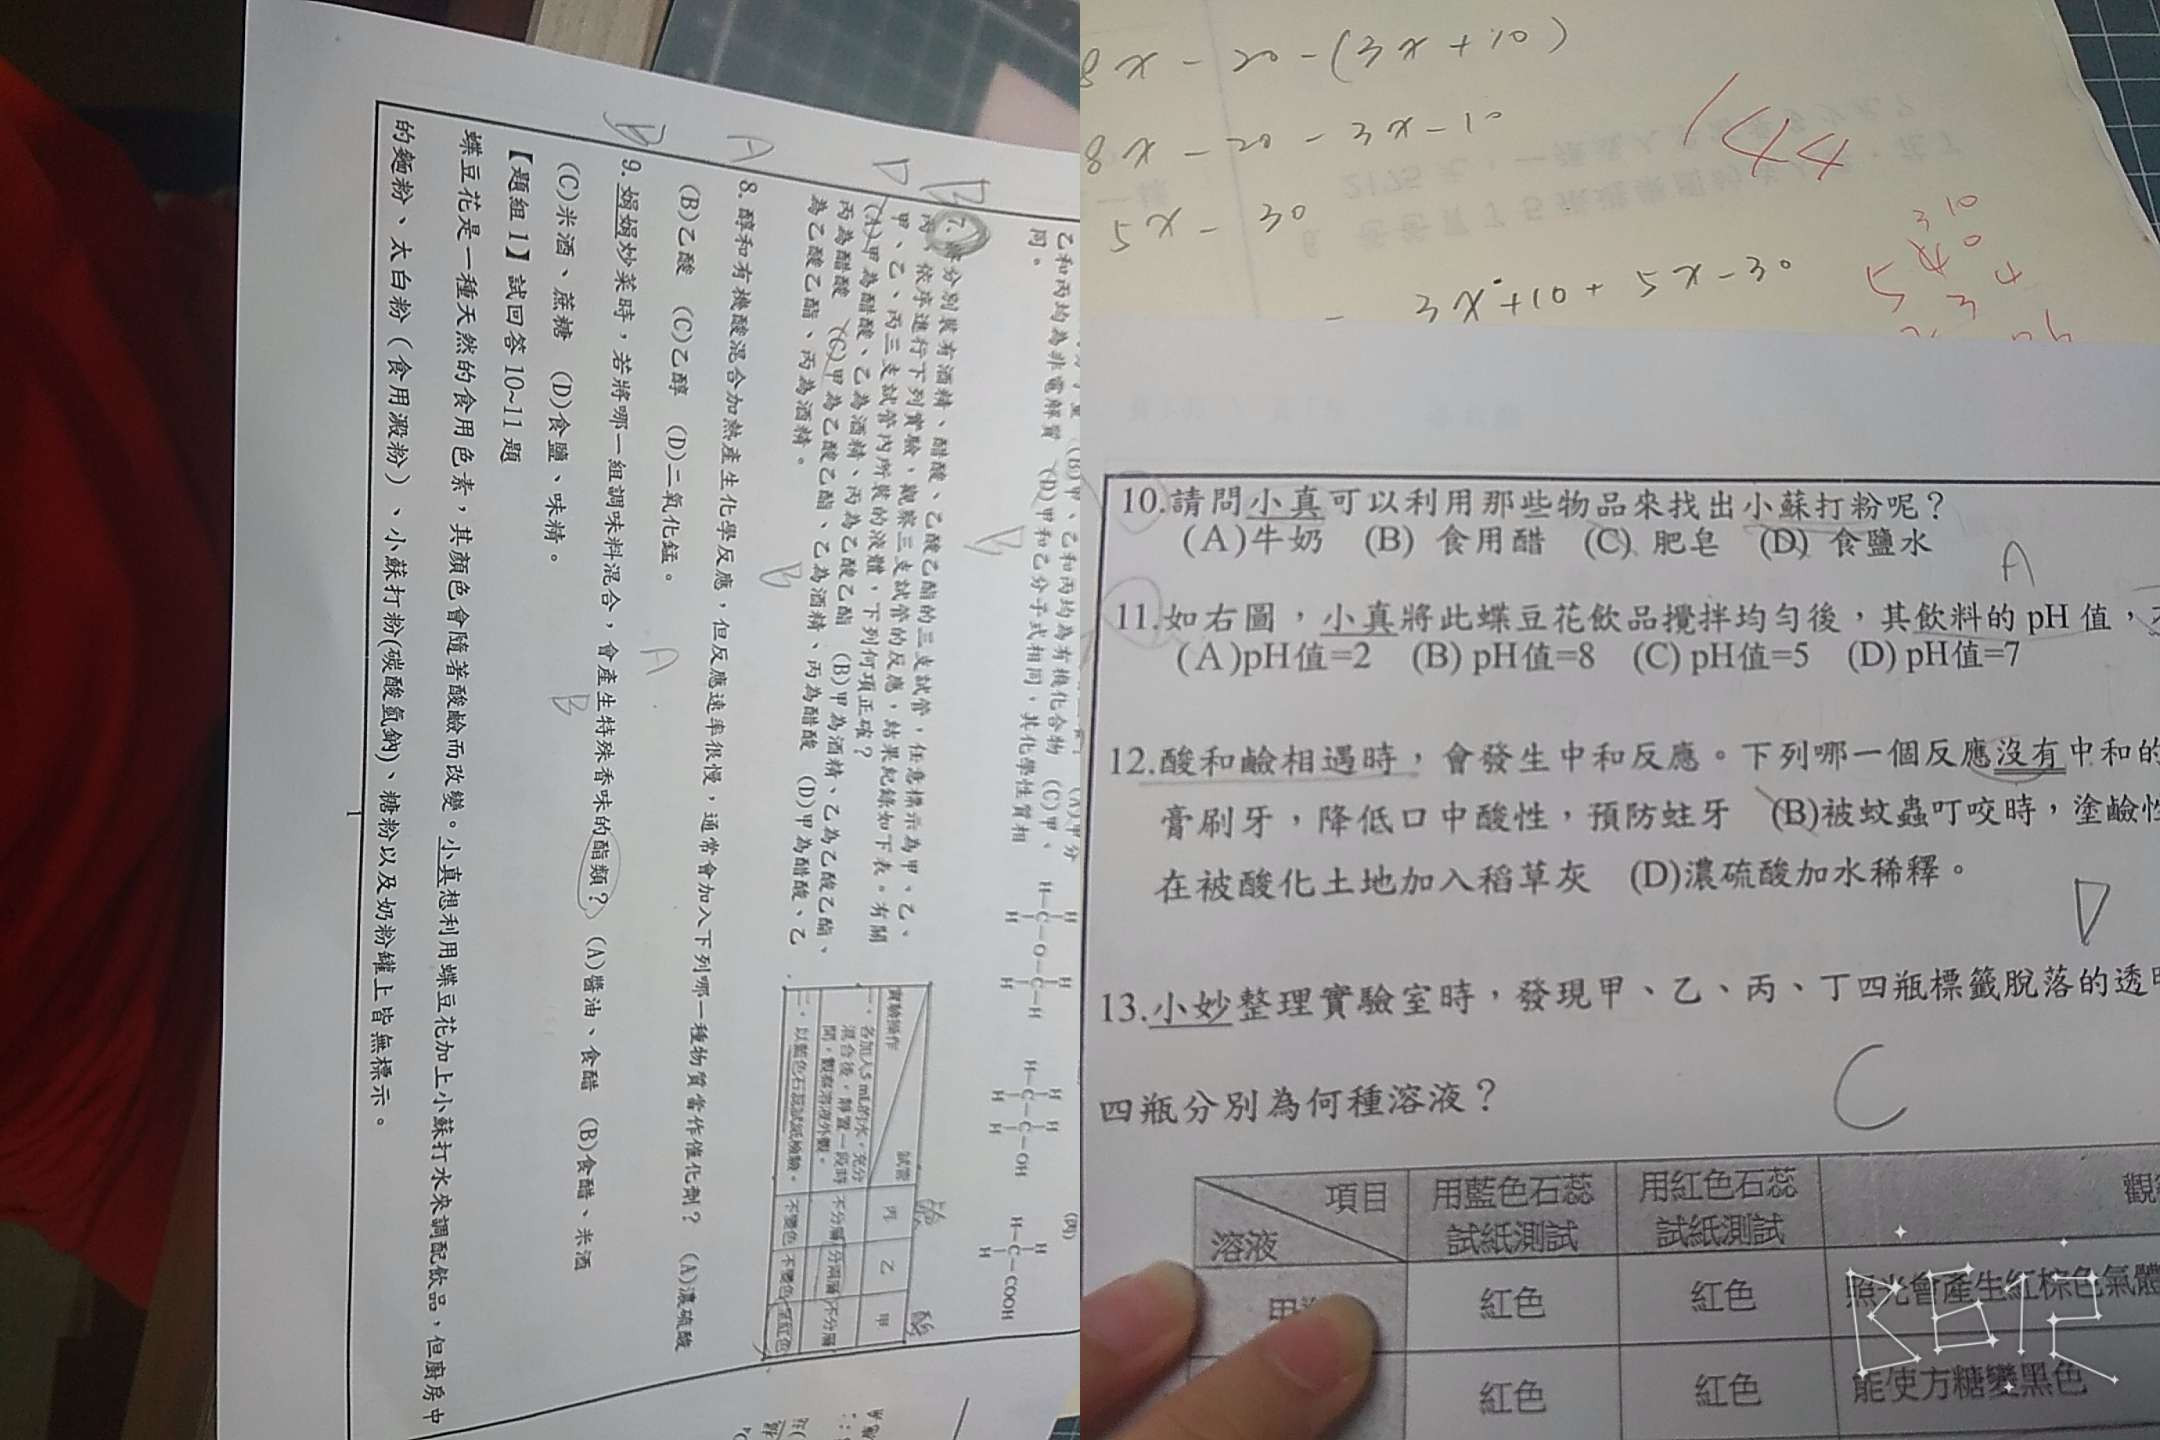 乙和丙均為非電解質 (D)甲和乙分子式相同，其化學性質相
同。
B
D
7.
分別裝有酒精、醋酸、乙酸乙酯的三支試管，任意標示為甲、乙、
丙，依序進行下列實驗，觀察三支試管的反應，結果紀錄如下表。有關
甲、乙、丙三支試管內所裝的液體，下列何項正確？
(A)甲為醋酸、乙為酒精、丙為乙酸乙酯 (B)甲為酒精、乙為乙酸乙酯、
丙為醋酸 (C)甲為乙酸乙酯、乙為酒精、丙為醋酸 (D)甲為醋酸、乙
為乙酸乙酯、丙為酒精。
實驗操作 試管 丙 乙 甲
一、各加入5 mL的水，充分
混合後，靜置一段時
間，觀察溶液外觀。
不分層 分兩層 不分層
二、以藍色石蕊試紙檢驗。 不變色 不變色 變紅色
A
8. 醇和有機酸混合加熱產生化學反應，但反應速率很慢，通常會加入下列哪一種物質當作催化劑？ (A)濃硫酸
(B)乙酸 (C)乙醇 (D)二氧化錳。
A
B
9. 娟娟炒菜時，若將哪一組調味料混合，會產生特殊香味的酯類？ (A)醬油、食醋 (B)食醋、米酒
(C)米酒、蔗糖 (D)食鹽、味精。
B
【題組 1】試回答 10~11 題
蝶豆花是一種天然的食用色素，其顏色會隨著酸鹼而改變。小真想利用蝶豆花加上小蘇打水來調配飲品，但廚房中
的麵粉、太白粉（食用澱粉）、小蘇打粉(碳酸氫鈉)、糖粉以及奶粉罐上皆無標示。
1
8x - 20 - (3x + 10)
8x - 20 - 3x - 10
5x - 30
3x + 10 + 5x - 30
10.請問小真可以利用那些物品來找出小蘇打粉呢？
(A)牛奶 (B) 食用醋 (C) 肥皂 (D) 食鹽水
A
11.如右圖，小真將此蝶豆花飲品攪拌均勻後，其飲料的 pH 值，
(A)pH值=2 (B) pH值=8 (C) pH值=5 (D) pH值=7
12.酸和鹼相遇時，會發生中和反應。下列哪一個反應沒有中和的
膏刷牙，降低口中酸性，預防蛀牙 (B)被蚊蟲叮咬時，塗鹼性
在被酸化土地加入稻草灰 (D)濃硫酸加水稀釋。
D
13.小妙整理實驗室時，發現甲、乙、丙、丁四瓶標籤脫落的透明
四瓶分別為何種溶液？
C
項目 溶液 用藍色石蕊試紙測試 用紅色石蕊試紙測試 觀
甲 紅色 紅色 照光會產生紅棕色氣體
紅色 紅色 能使方糖變黑色